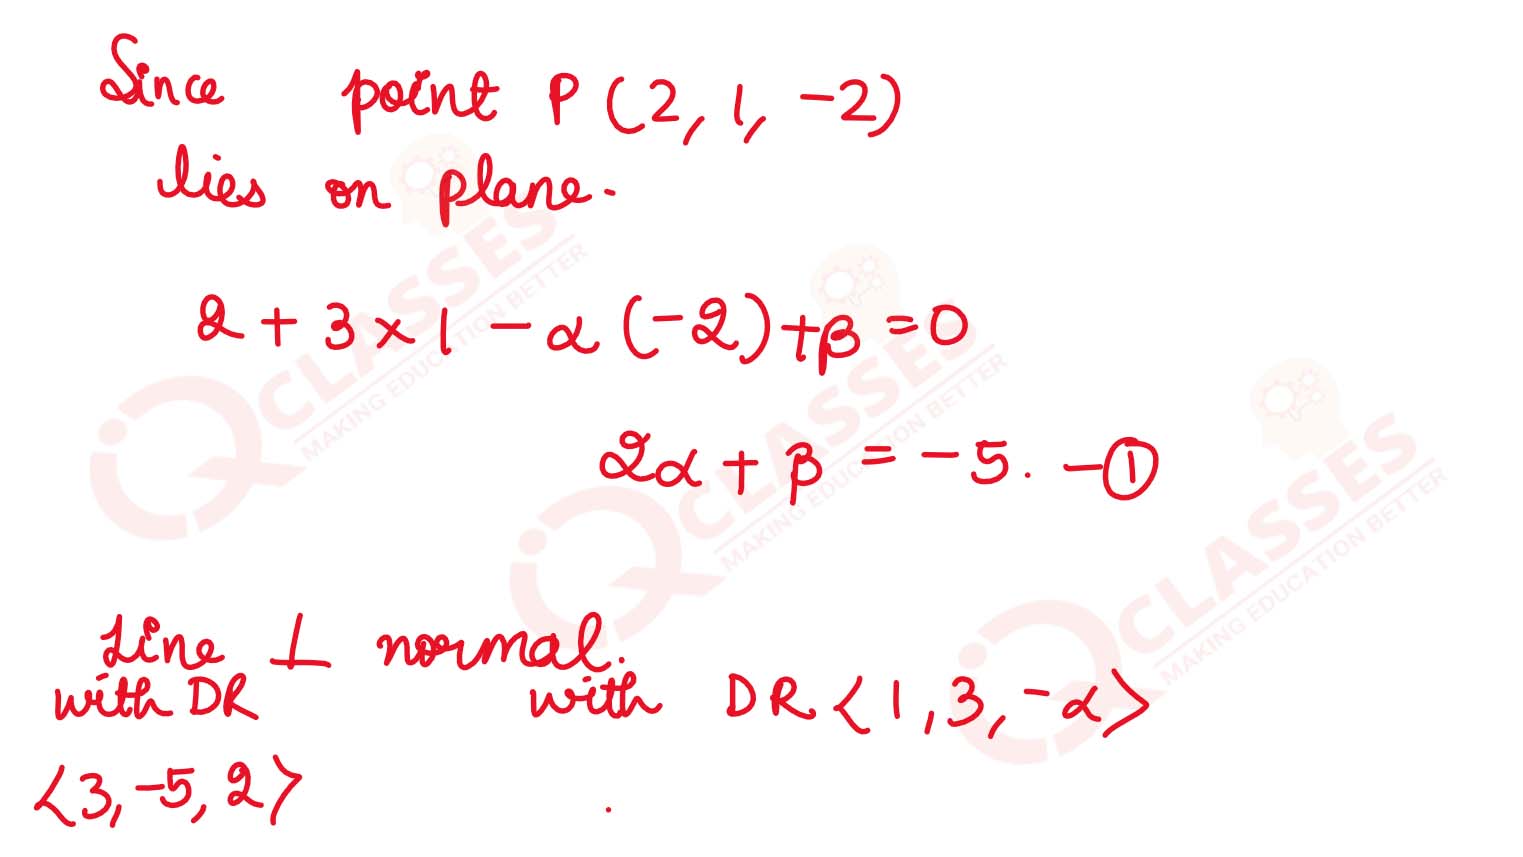 Since point P (2, 1, -2)
lies on plane.
2 + 3 × 1 - α (-2) + β = 0
2α + β = -5. - ①
Line ⊥ normal.
with DR with DR <1, 3, -α>
<3, -5, 2>
iQ CLASSES
MAKING EDUCATION BETTER
iQ CLASSES
MAKING EDUCATION BETTER
iQ CLASSES
MAKING EDUCATION BETTER